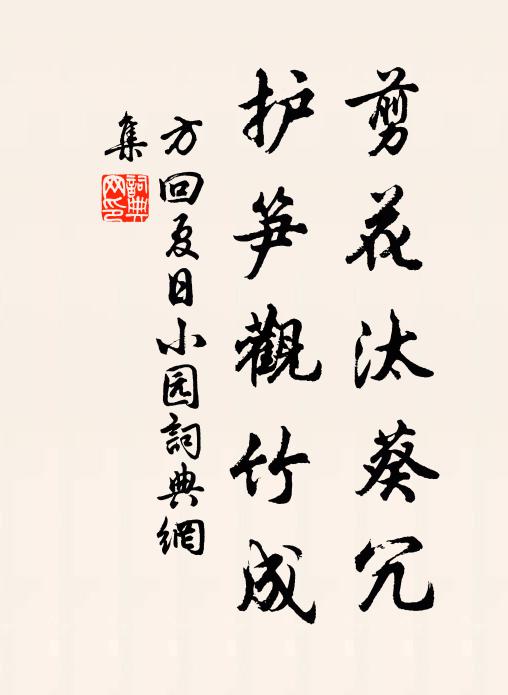 剪花汰葵冗
护笋觀竹成
方回夏日小园詞典網
集
詞典
网印